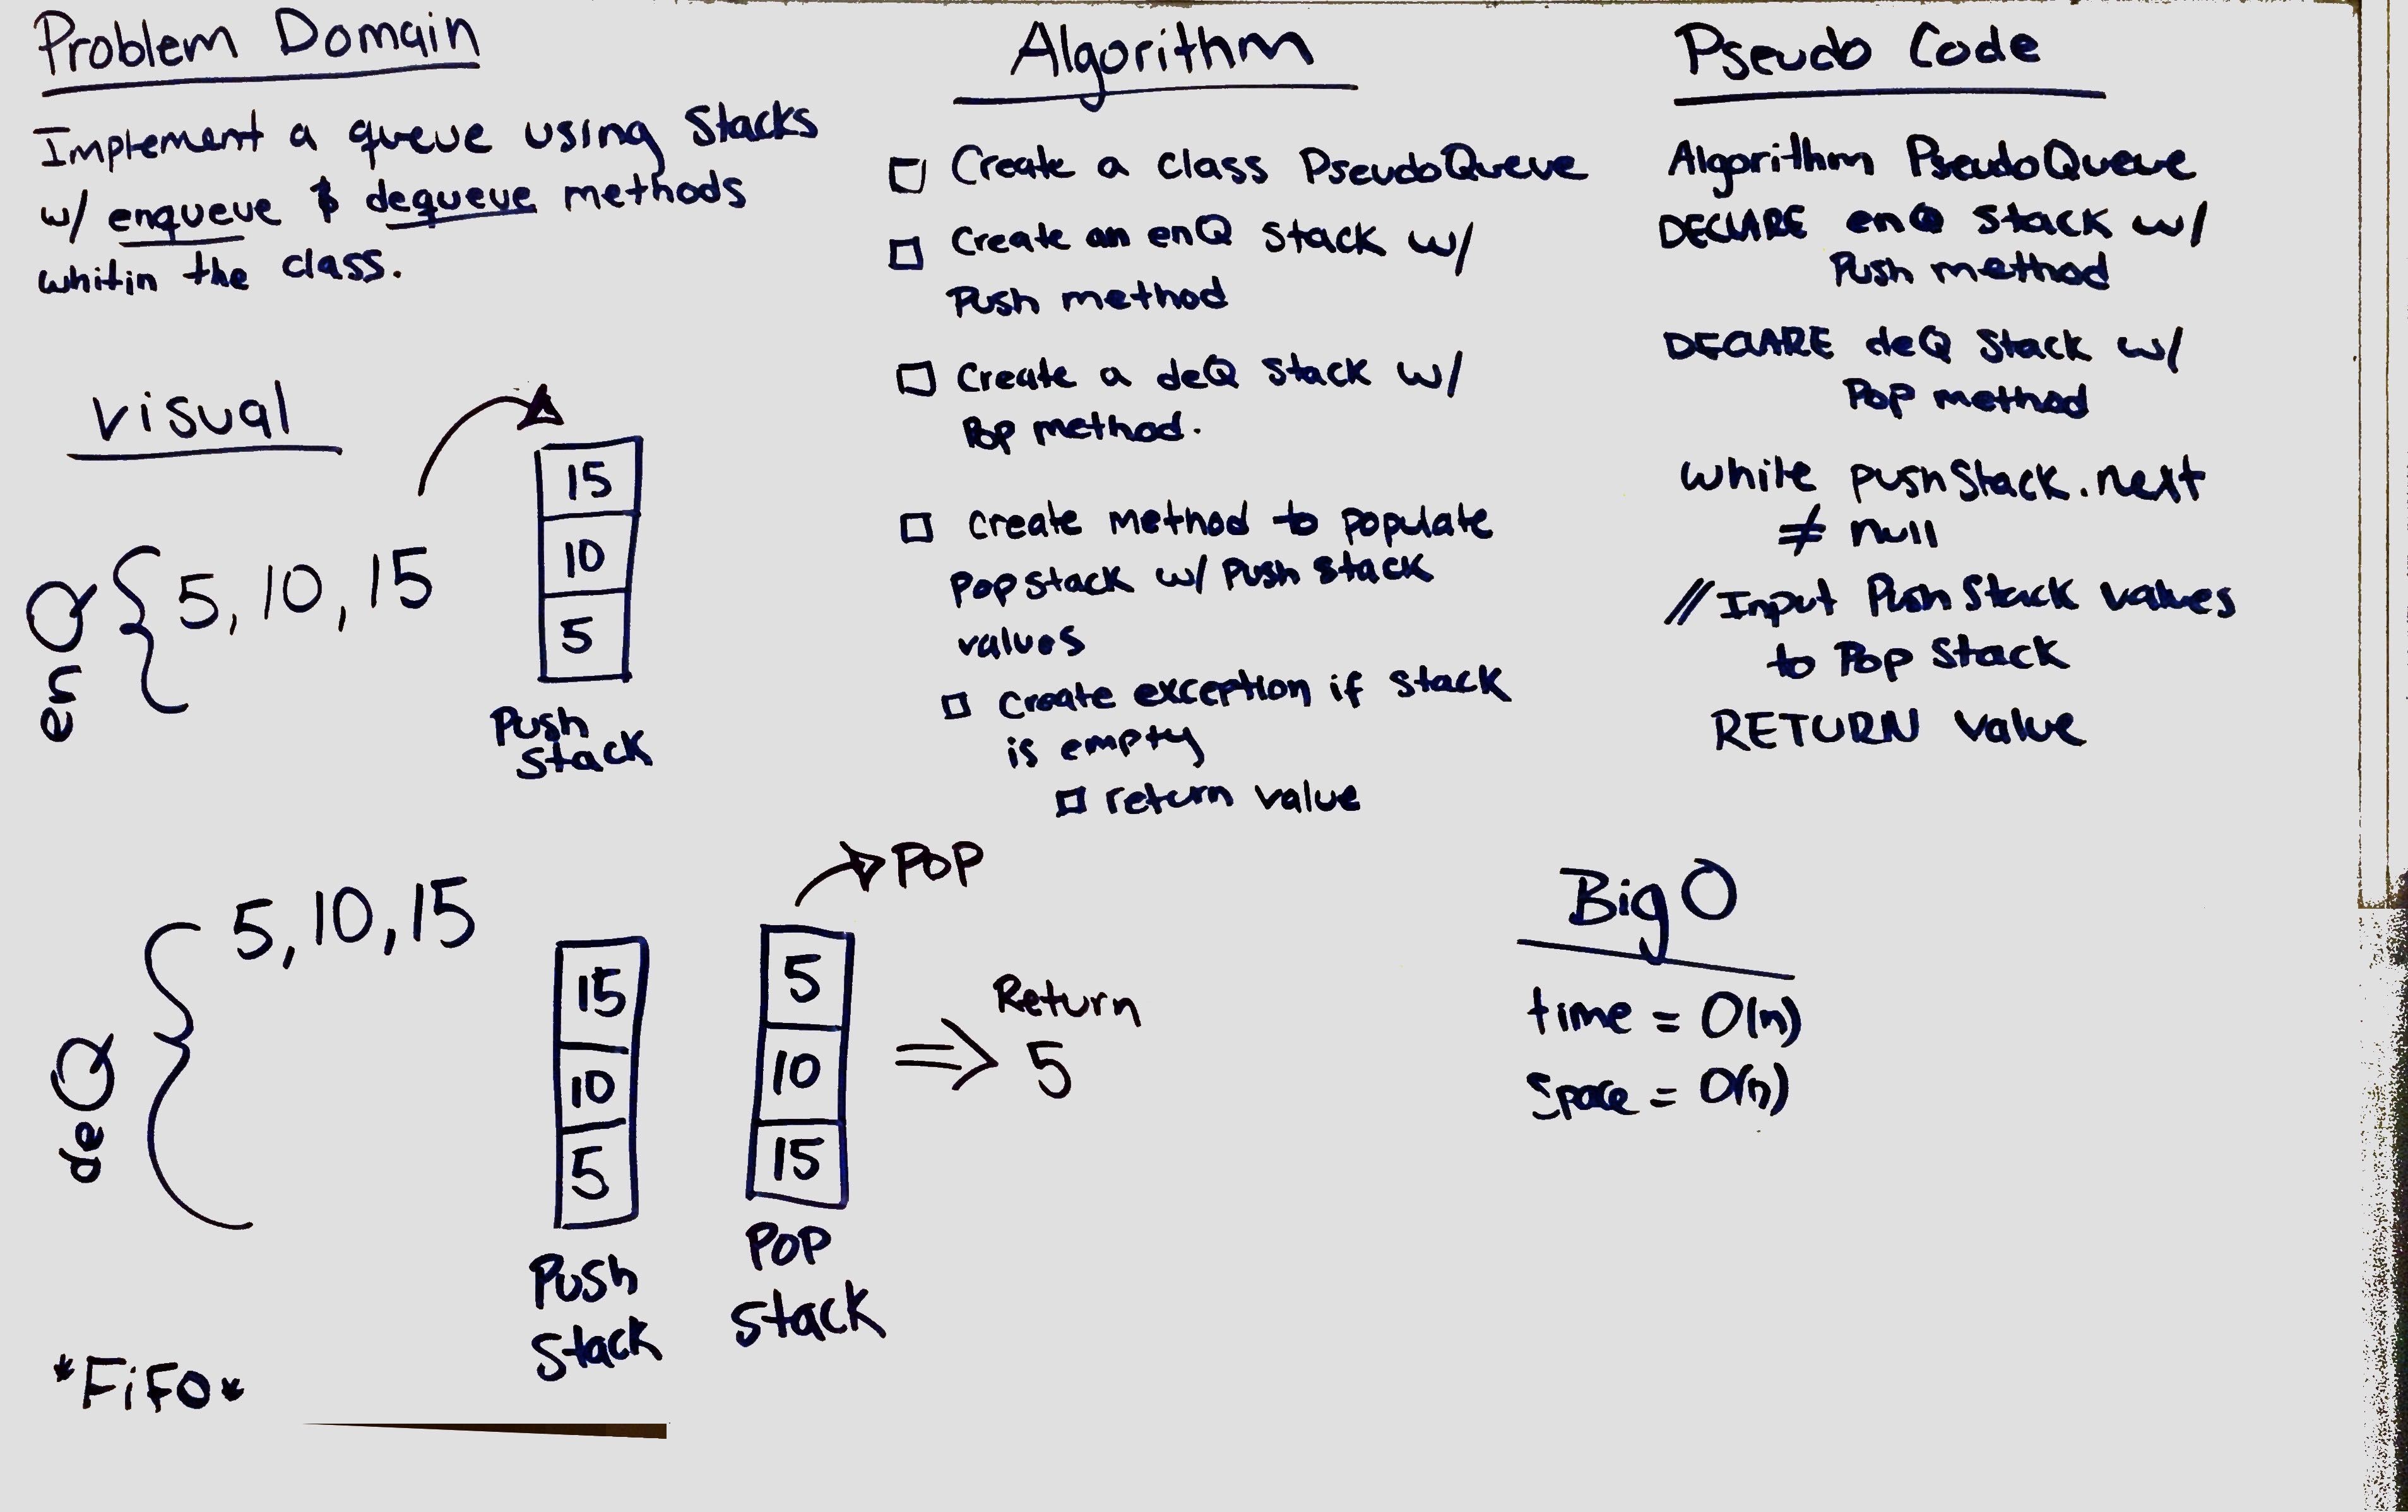 Problem Domain
Implement a queue using Stacks
w/ enqueue & dequeue methods
whitin the class.
visual
enQ
5, 10, 15
15
10
5
Push
Stack
deQ
5, 10, 15
15
10
5
Push
Stack
POP
5
10
15
POP
Stack
Return
5
*FiFO*
Algorithm
Create a class PseudoQueue
Create an enQ Stack w/
Push method
Create a deQ Stack w/
Pop method.
Create method to populate
Popstack w/ Push stack
values
Create exception if stack
is empty
return value
Pseudo Code
Algorithm PseudoQueue
DECLARE enQ Stack w/
Push method
DECLARE deQ Stack w/
Pop method
while pushStack.next
≠ null
// Input PushStack values
to Pop Stack
RETURN value
Big O
time = O(n)
Space = O(n)